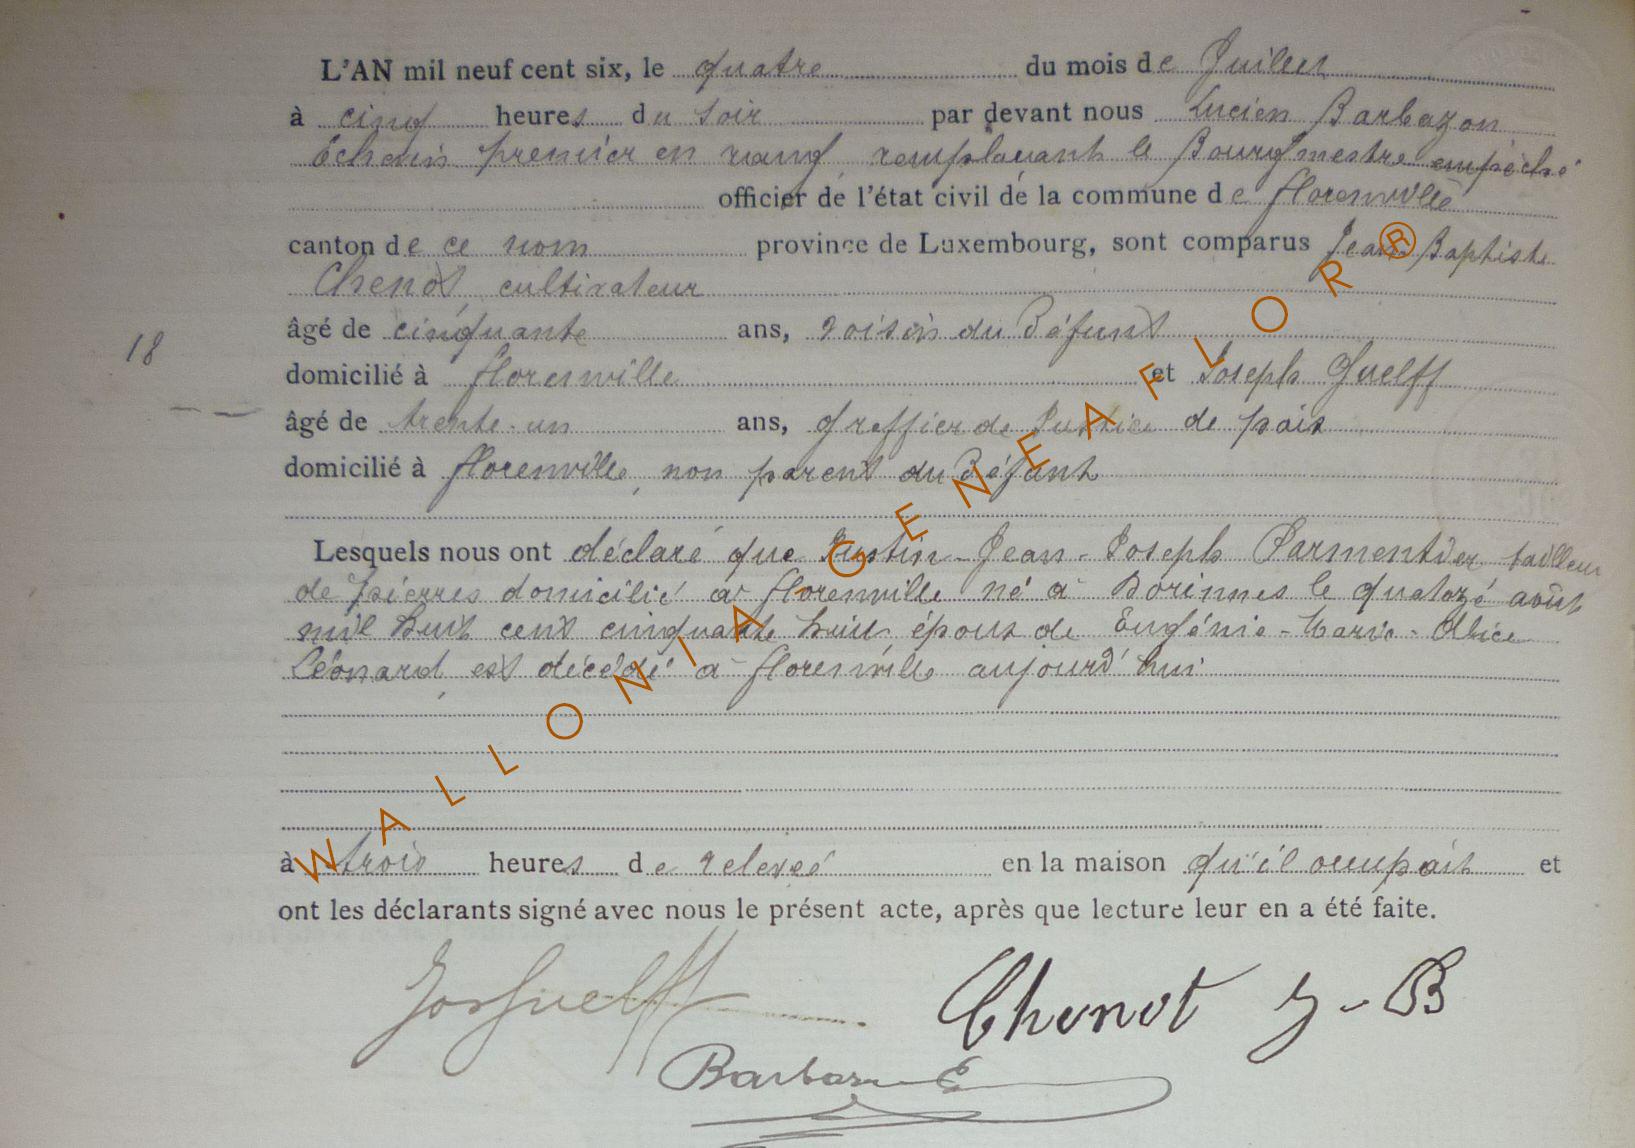 L'AN mil neuf cent six, le quatre du mois de Juillet
à cinq heures du soir par devant nous Lucien Barbazon
Echevin premier en rang remplaçant le Bourgmestre empêché
officier de l'état civil de la commune de Florenville
canton de ce nom province de Luxembourg, sont comparus Jean Baptiste
Chenot cultivateur
âgé de cinquante ans, voisin du défunt
18
domicilié à Florenville et Joseph Guelff
âgé de trente-un ans, greffier de Justice de paix
domicilié à Florenville, non parent du défunt
Lesquels nous ont déclaré que Justin-Jean-Joseph Parmentier tailleur
de pierres domicilié à Florenville né à Dorinnes le quatorze août
mil huit cent cinquante huit époux de Eugénie-Marie-Alice
Léonard, est décédé à Florenville aujourd'hui
à trois heures de relevée en la maison qu'il occupait et
ont les déclarants signé avec nous le présent acte, après que lecture leur en a été faite.
Jos Guelff Chenot J-B
WALLONIA - GENEAFLOR ®